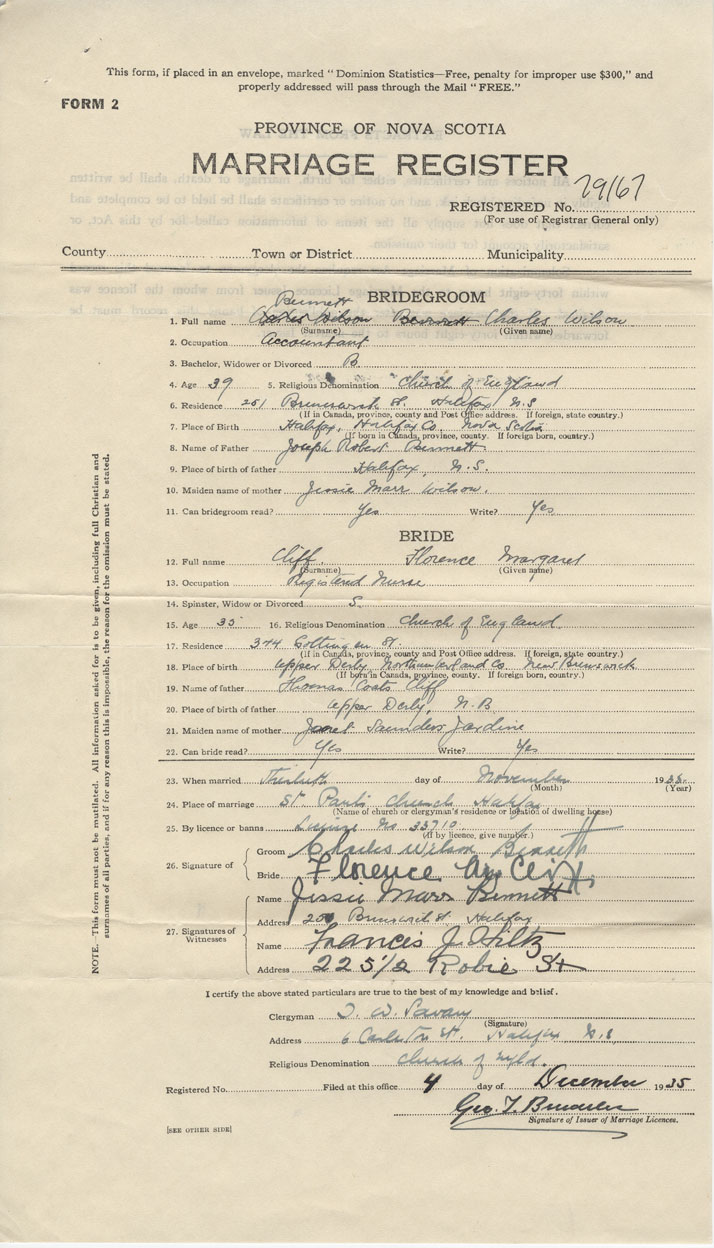 This form, if placed in an envelope, marked "Dominion Statistics—Free, penalty for improper use $300," and
properly addressed will pass through the Mail "FREE."
FORM 2
PROVINCE OF NOVA SCOTIA
MARRIAGE REGISTER
REGISTERED No. 79167
(For use of Registrar General only)
County Town or District Municipality
Bennett BRIDEGROOM
1. Full name Wilson Bennett Charles Wilson
(Surname) (Given name)
2. Occupation Accountant
3. Bachelor, Widower or Divorced B.
4. Age 39 5. Religious Denomination Church of England
6. Residence 251 Brunswick St. Halifax N.S
(If in Canada, province, county and Post Office address. If foreign, state country.)
7. Place of Birth Halifax, Halifax Co. Nova Scotia
(If born in Canada, province, county. If foreign born, country.)
8. Name of Father Joseph Robert Bennett
9. Place of birth of father Halifax, N.S.
10. Maiden name of mother Jessie Marr Wilson.
11. Can bridegroom read? Yes Write? Yes
BRIDE
12. Full name Cliff Florence Margaret
(Surname) (Given name)
13. Occupation Registered Nurse
14. Spinster, Widow or Divorced S.
15. Age 35 16. Religious Denomination Church of England
17. Residence 344 Gottingen St.
(If in Canada, province, county and Post Office address. If foreign, state country.)
18. Place of birth Upper Derby Northumberland Co New Brunswick
(If born in Canada, province, county. If foreign born, country.)
19. Name of father Thomas Coats Cliff
20. Place of birth of father Upper Derby, N.B
21. Maiden name of mother Janet Saunders Jardine
22. Can bride read? Yes Write? Yes
23. When married Thirtieth day of November 1935
(Month) (Year)
24. Place of marriage St. Paul's Church Halifax
(Name of church or clergyman's residence or location of dwelling house)
25. By licence or banns License No 33710
(If by licence, give number.)
26. Signature of Groom Charles Wilson Bennett
Bride Florence M. Cliff
27. Signatures of Witnesses
Name Jessie Marr Bennett
Address Brunswick St Halifax
Name Frances J. Hiltz
Address 225 1/2 Robie St
I certify the above stated particulars are true to the best of my knowledge and belief.
Clergyman T. W. Savary
(Signature)
Address 6 Carleton St. Halifax N.S
Religious Denomination Church of Engld.
Registered No. Filed at this office 4 day of December 1935
Geo. T.
Signature of Issuer of Marriage Licences.
[SEE OTHER SIDE]
NOTE. This form must not be mutilated. All information asked for is to be given, including full Christian and
surnames of all parties, and if for any reason this is impossible, the reason for the omission must be stated.